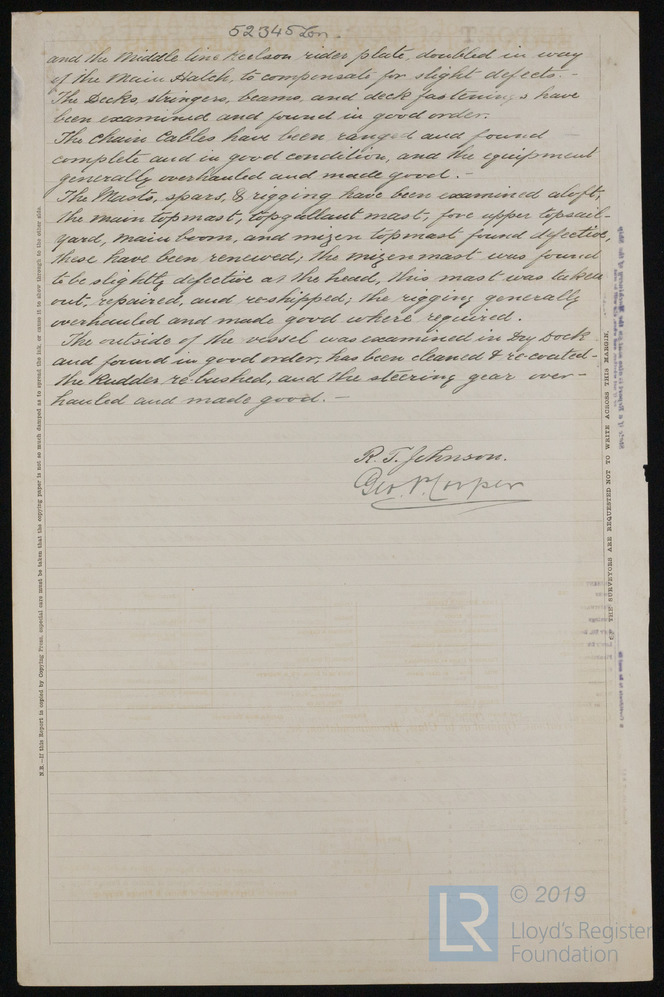 52345 Lon.
and the Middle line Keelson rider plate, doubled in way
of the Main Hatch, to compensate for slight defects. -
The Decks, stringers, beams, and deck fastenings have
been examined and found in good order.
The Chain Cables have been ranged and found
complete and in good condition, and the equipment
generally overhauled and made good. -
The Masts, spars, & rigging have been examined aloft,
the main topmast, topgallant mast, fore upper topsail-
yard, main boom, and mizen topmast found defective,
these have been renewed; the mizenmast was found
to be slightly defective at the head, this mast was taken
out, repaired, and re-shipped; the rigging generally
overhauled and made good where required.
The outside of the vessel was examined in Dry Dock
and found in good order, has been cleaned & re-coated -
the Rudder re-bushed, and the steering gear over-
hauled and made good. -
R. T. Johnson.
Geo. P. Cooper
N.B.—If this Report is copied by Copying Press, especial care must be taken that the copying paper is not so much damped as to spread the ink, or cause it to show through to the other side.
THE SURVEYORS ARE REQUESTED NOT TO WRITE ACROSS THIS MARGIN.
LR
© 2019
Lloyd's Register
Foundation